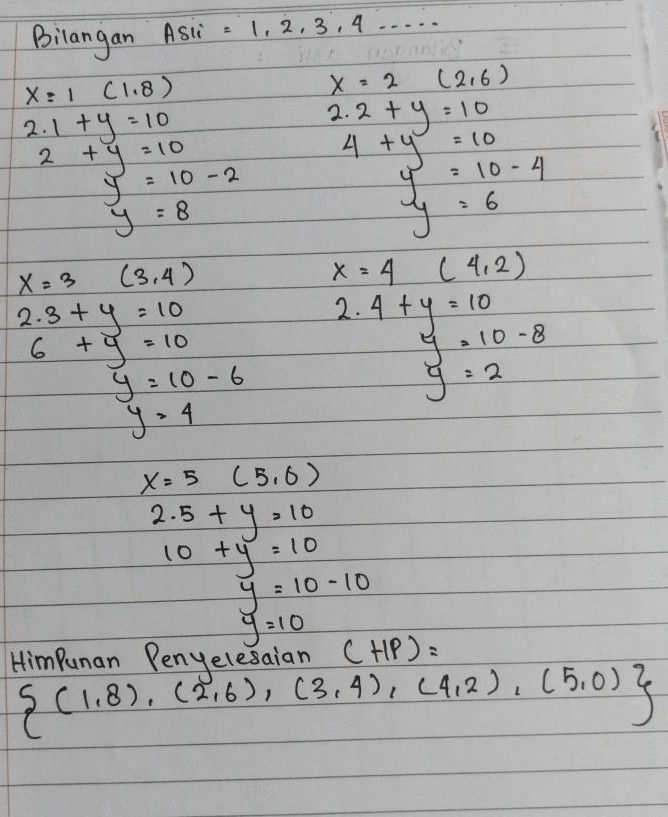 Bilangan Asli = 1, 2, 3, 4 .....
x = 1 (1,8)
2.1 + y = 10
2 + y = 10
y = 10 - 2
y = 8
x = 2 (2,6)
2.2 + y = 10
4 + y = 10
y = 10 - 4
y = 6
x = 3 (3,4)
2.3 + y = 10
6 + y = 10
y = 10 - 6
y = 4
x = 4 (4,2)
2.4 + y = 10
y = 10 - 8
y = 2
x = 5 (5,0)
2.5 + y = 10
10 + y = 10
y = 10 - 10
y = 10
Himpunan Penyelesaian (HP) =
{(1,8), (2,6), (3,4), (4,2), (5,0)}